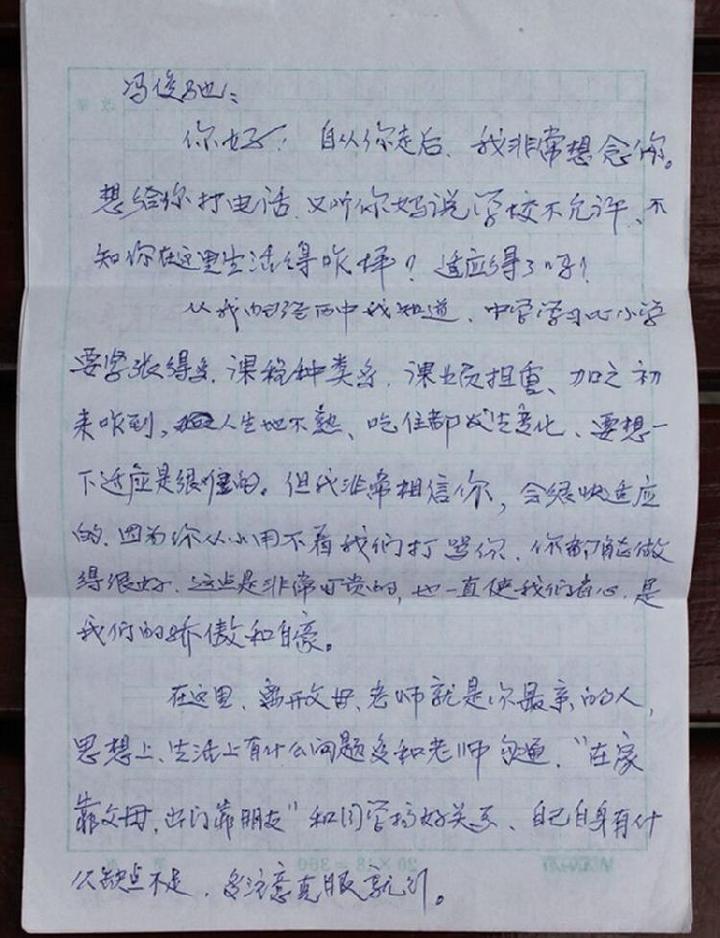 冯俊驰：
你好！自从你走后、我非常想念你。
想给你打电话、又听你妈说学校不允许、不
知你在这里生活得咋样？适应得了吗？
从我的经历中我知道、中学学习比小学
要紧张得多、课程种类多、课业负担重、加之初
来咋到，人生地不熟、吃住都发生变化、要想一
下适应是很难的。但我非常相信你，会很快适应
的、因为你从小用不着我们打骂你、你都能做
得很好、这点是非常可贵的，也一直使我们省心、是
我们的骄傲和自豪。
在这里、离开父母、老师就是你最亲的人，
思想上、生活上有什么问题多和老师勾通、“在家
靠父母，出门靠朋友”和同学搞好关系、自己自身有什
么缺点不足、多注意克服就行。
20×18=360